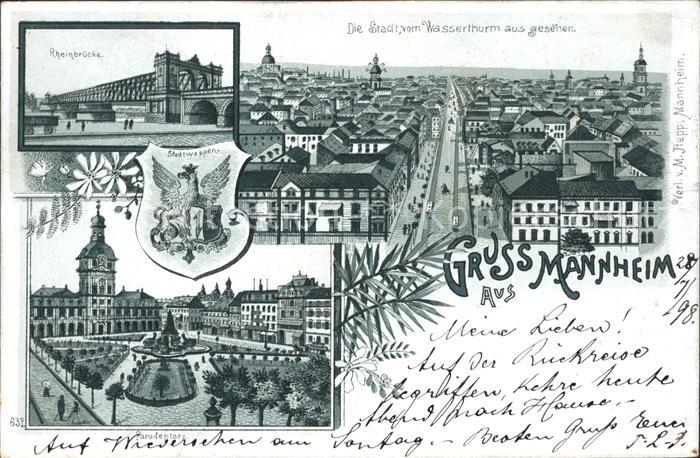 Die Stadt, vom Wasserthurm aus gesehen.
Rheinbrücke.
Stadtwappen.
Verl. v. M. Hepp, Mannheim.
GRUSS AUS MANNHEIM
28/7/98.
Meine Lieben!
Auf der Rückreise
begriffen, kehre heute
Abend nach Hause. -
Paradeplatz
Auf Wiedersehen am Sontag. - Besten Gruss Euer